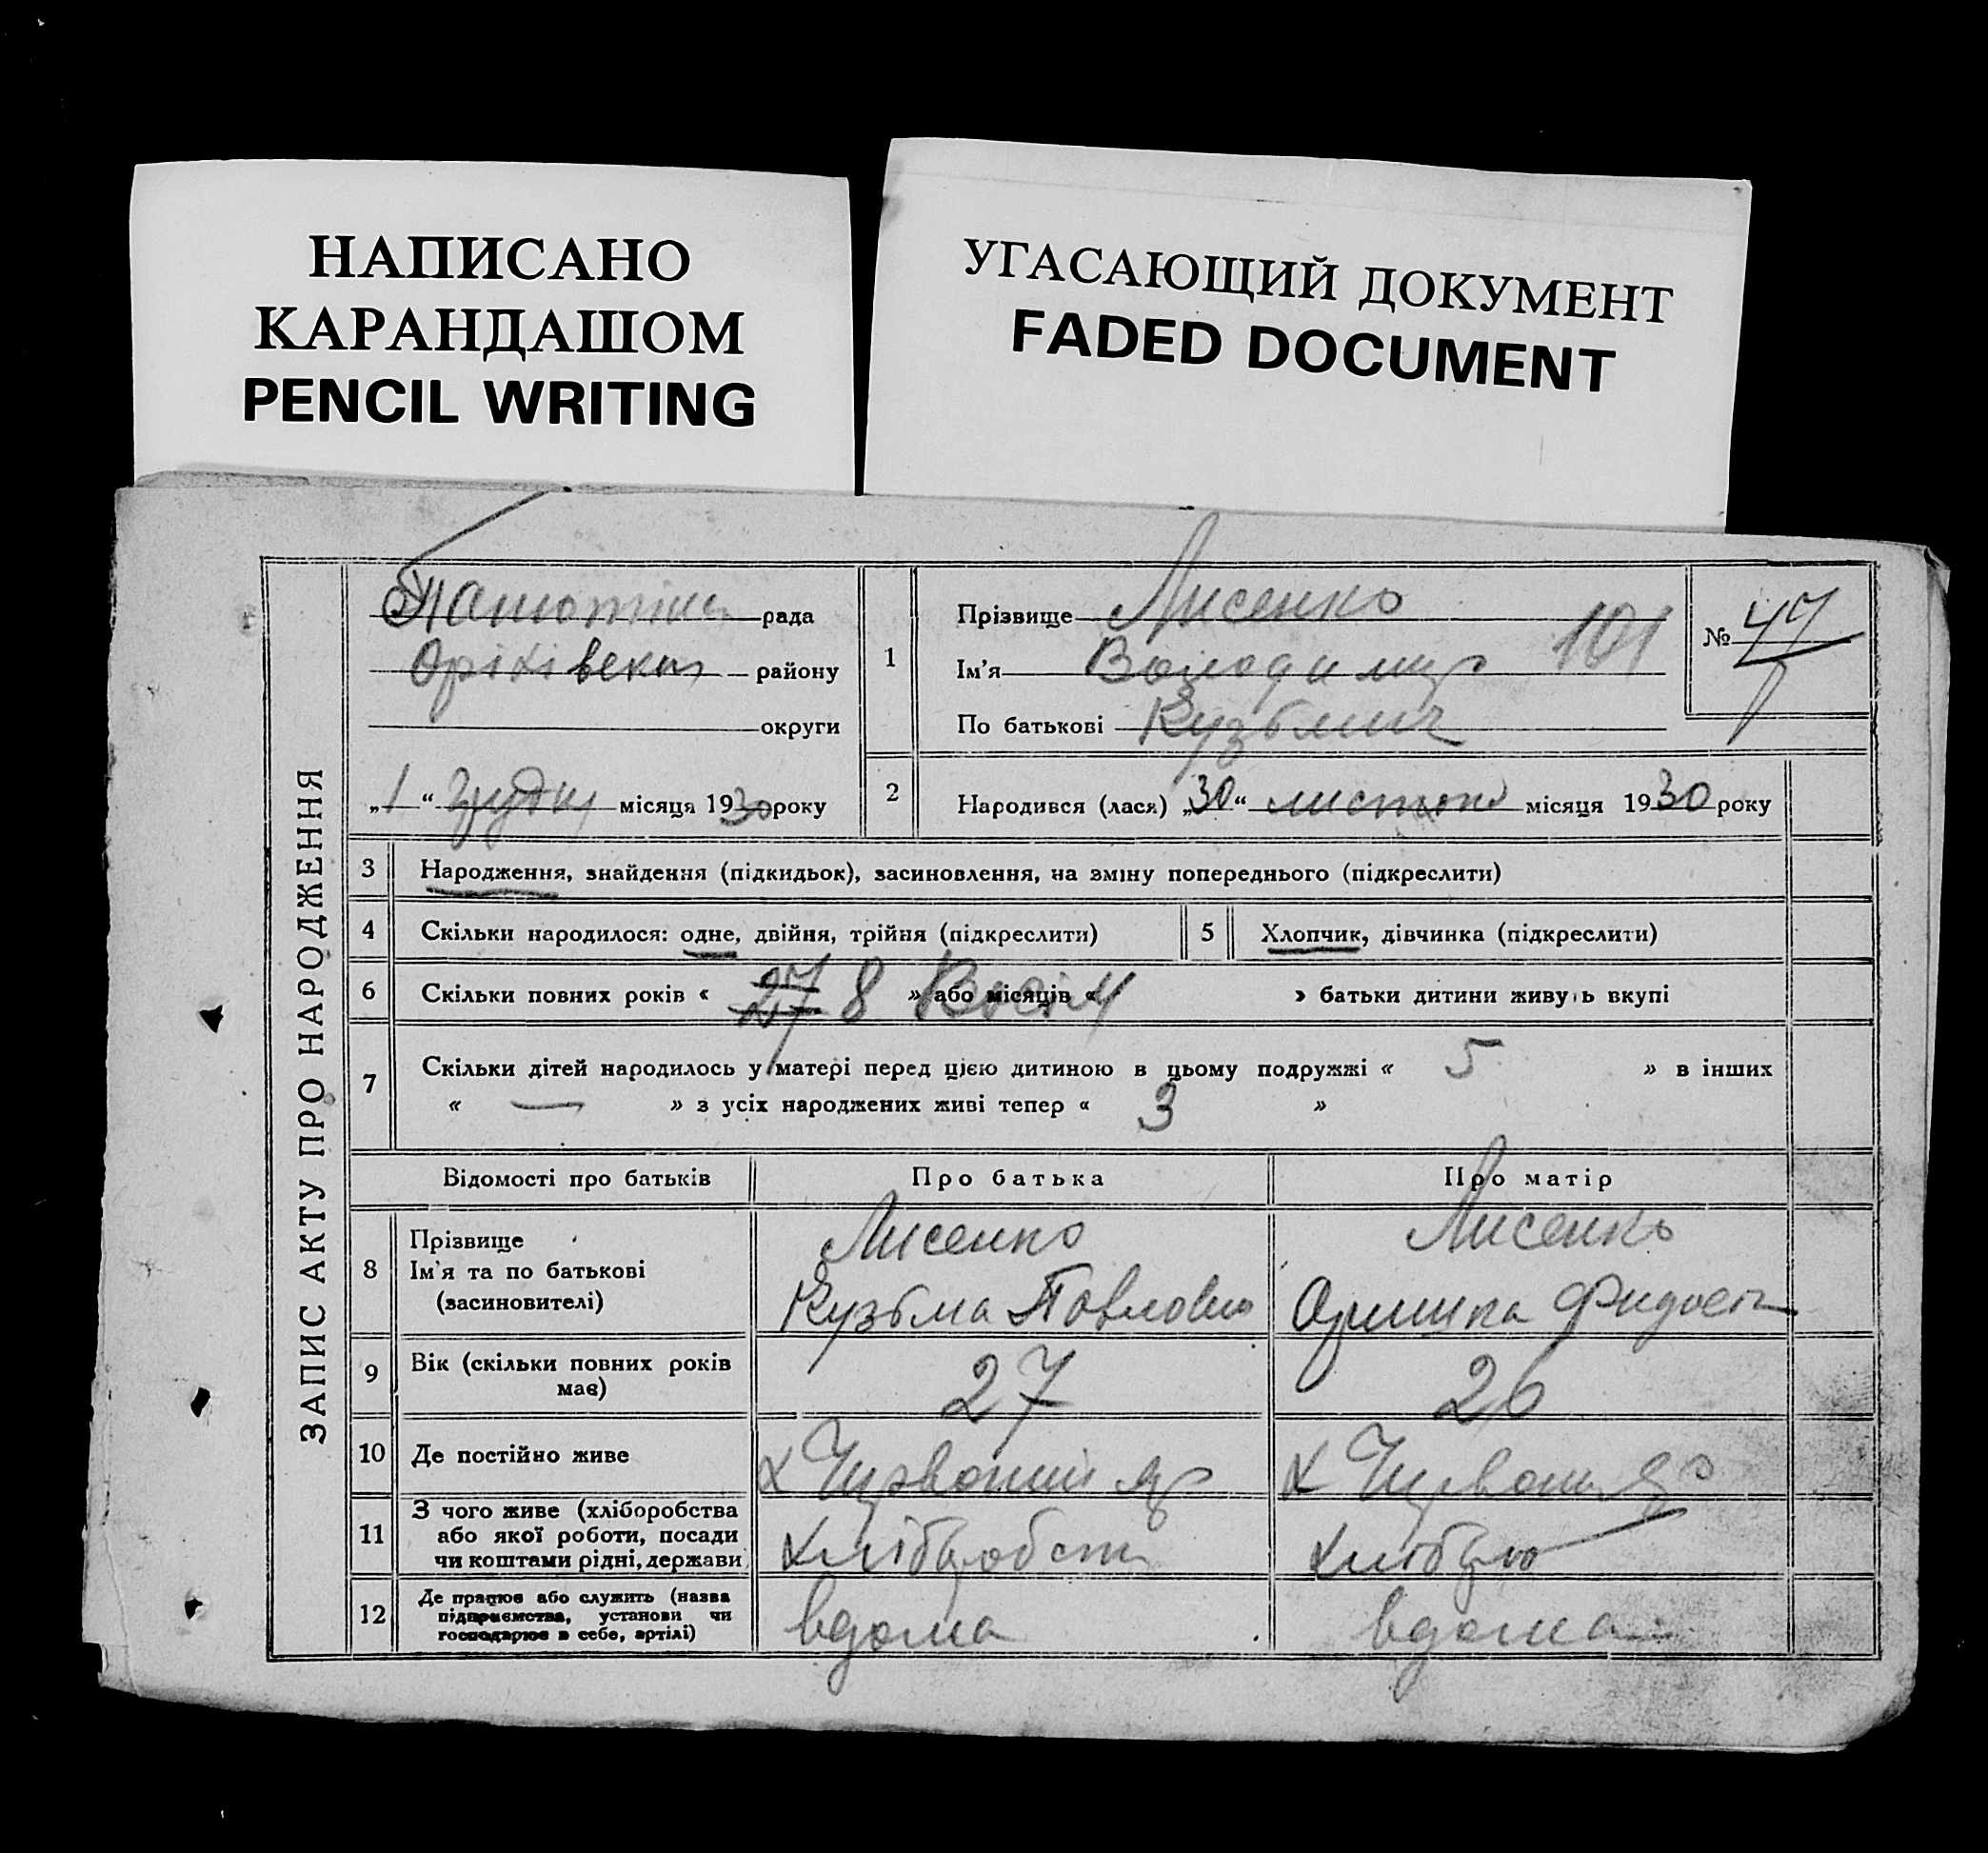 НАПИСАНО
КАРАНДАШОМ
PENCIL WRITING
УГАСАЮЩИЙ ДОКУМЕНТ
FADED DOCUMENT
ЗАПИС АКТУ ПРО НАРОДЖЕННЯ
рада
району
округи
„1“ грудня місяця 1930 року
1
Прізвище Лисенко
Ім'я Володимир
По батькові Кузьмич
101
№ 47
2
Народився (лася) „30“ листопа місяця 1930 року
3 Народження, знайдення (підкидьок), засиновлення, на зміну попереднього (підкреслити)
4 Скільки народилося: одне, двійня, трійня (підкреслити)
5 Хлопчик, дівчинка (підкреслити)
6 Скільки повних років « 27 8 Восім » або місяців « » батьки дитини живуть вкупі
7 Скільки дітей народилось у матері перед цією дитиною в цьому подружжі « 5 » в інших
« — » з усіх народжених живі тепер « 3 »
Відомості про батьків Про батька Про матір
8 Прізвище
Ім'я та по батькові
(засиновителі)
Лисенко
Кузьма Павлович
Лисенко
Оришка
9 Вік (скільки повних років
має)
27 26
10 Де постійно живе
х Червоний Яр х Червон Яр
11 З чого живе (хліборобства
або якої роботи, посади
чи коштами рідні, держави
хлібороб
12 Де працює або служить (назва
підприємства, установи чи
господарює в себе, артілі)
вдома вдома